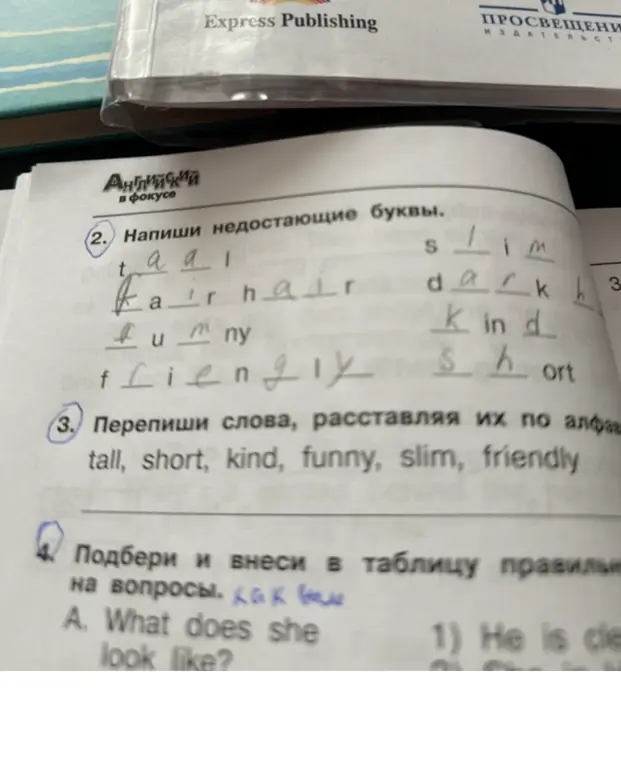 Express Publishing
ПРОСВЕЩЕНИ
ИЗДАТЕЛЬСТ
Английский
в фокусе
2. Напиши недостающие буквы.
t a a l
s l i m
f a i r h a i r
d a r k h
3
f u m ny
k in d
f r i e n g l y
s h ort
3. Перепиши слова, расставляя их по алфав
tall, short, kind, funny, slim, friendly
4. Подбери и внеси в таблицу правильн
на вопросы. как
A. What does she
look like?
1) He is cle
2) She is